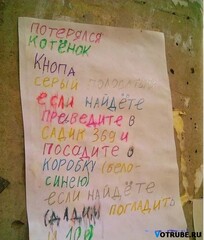 ПОТЕРЯЛСЯ
КОТЁНОК
КНОПА
СЕРЫЙ ПОЛОСАТЫЙ
ЕСЛИ НАЙДЁТЕ
ПРЕВЕДИТЕ В
САДИК 369 И
ПОСАДИТЕ В
КОРОБКУ (ВЕЛО-
СИНЕЮ)
ЕСЛИ НАЙДЁТЕ
ПОГЛАДИТЬ
10Р
VOTRUBE.RU